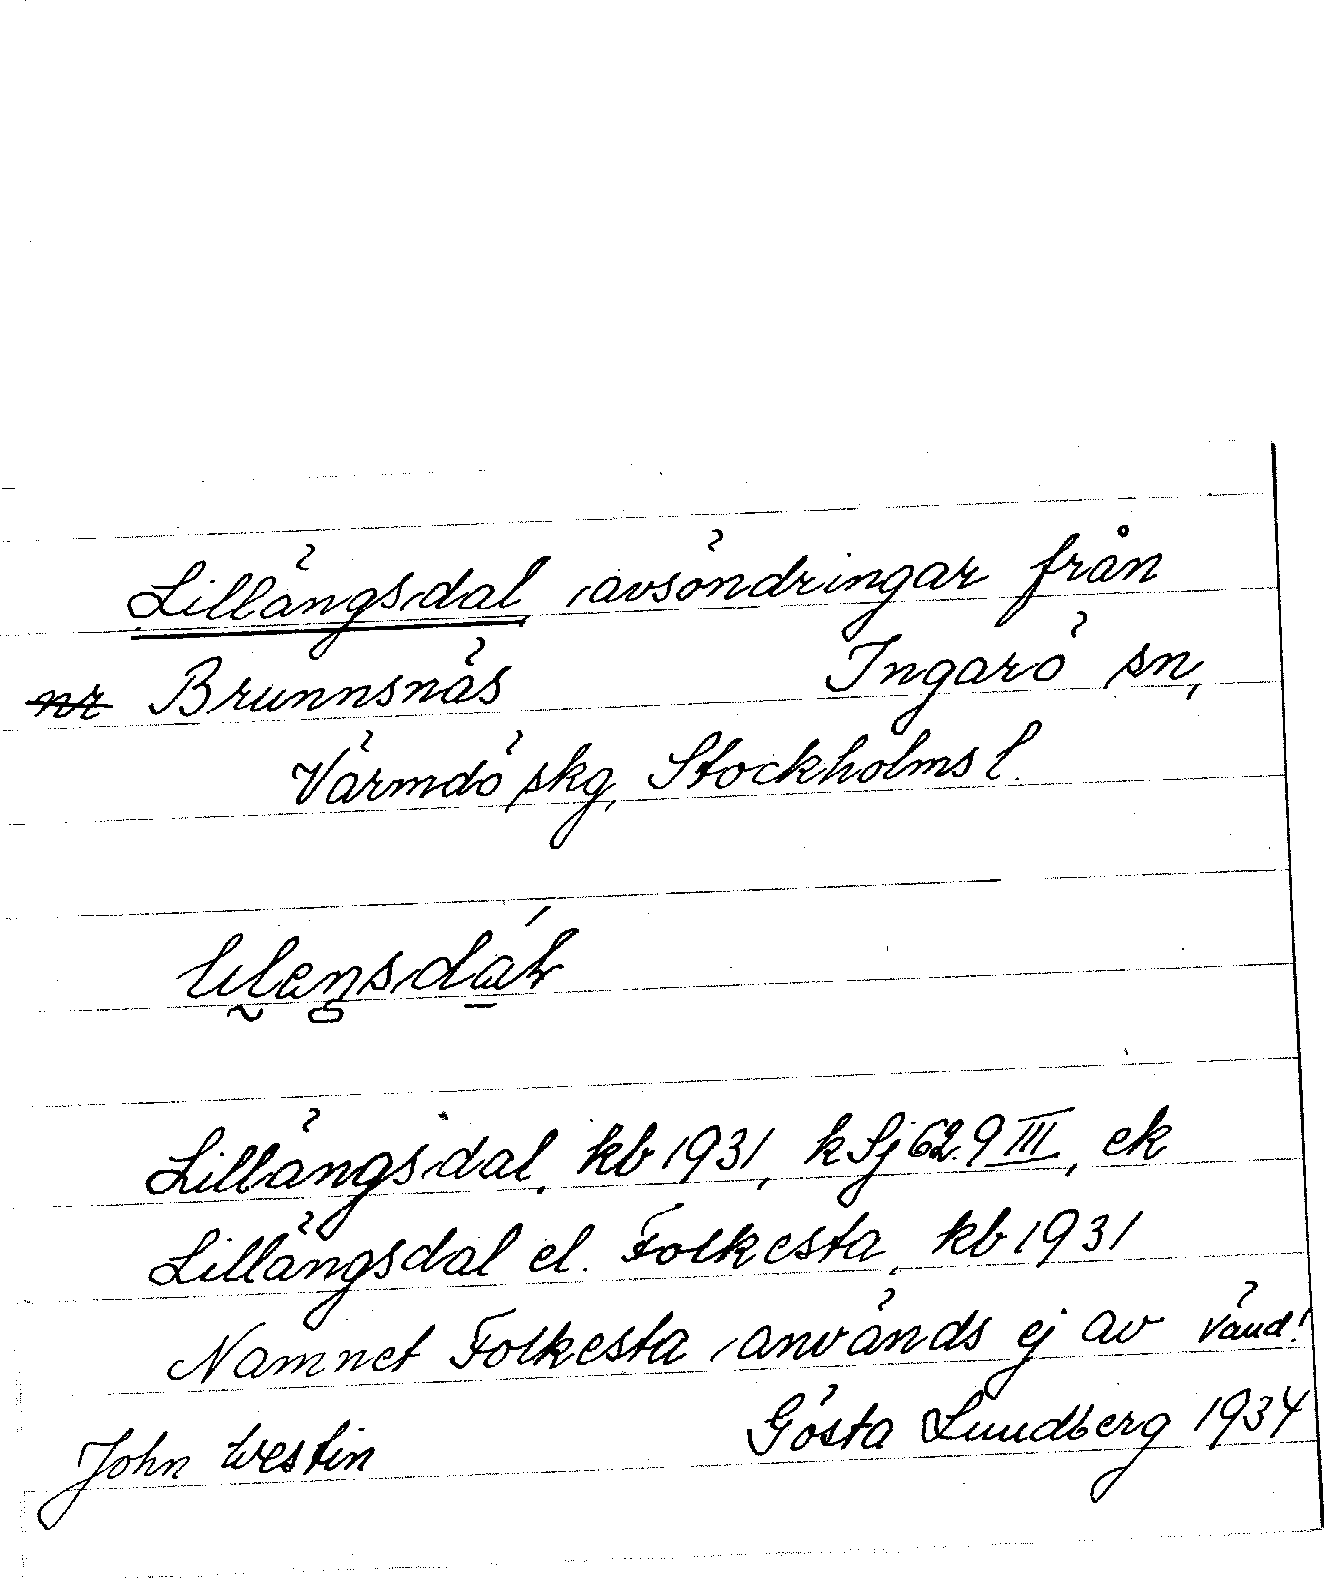 Lillängsdal, avsöndringar från
nr Brunnsnäs Ingarö sn,
Värmdö skg, Stockholms l.
Lillängsdal, kb 1931, k Sj 62.9 III, ek
Lillängsdal el. Folkesta, kb 1931
Namnet Folkesta används ej av vänd!
John Westin Gösta Lundberg 1934